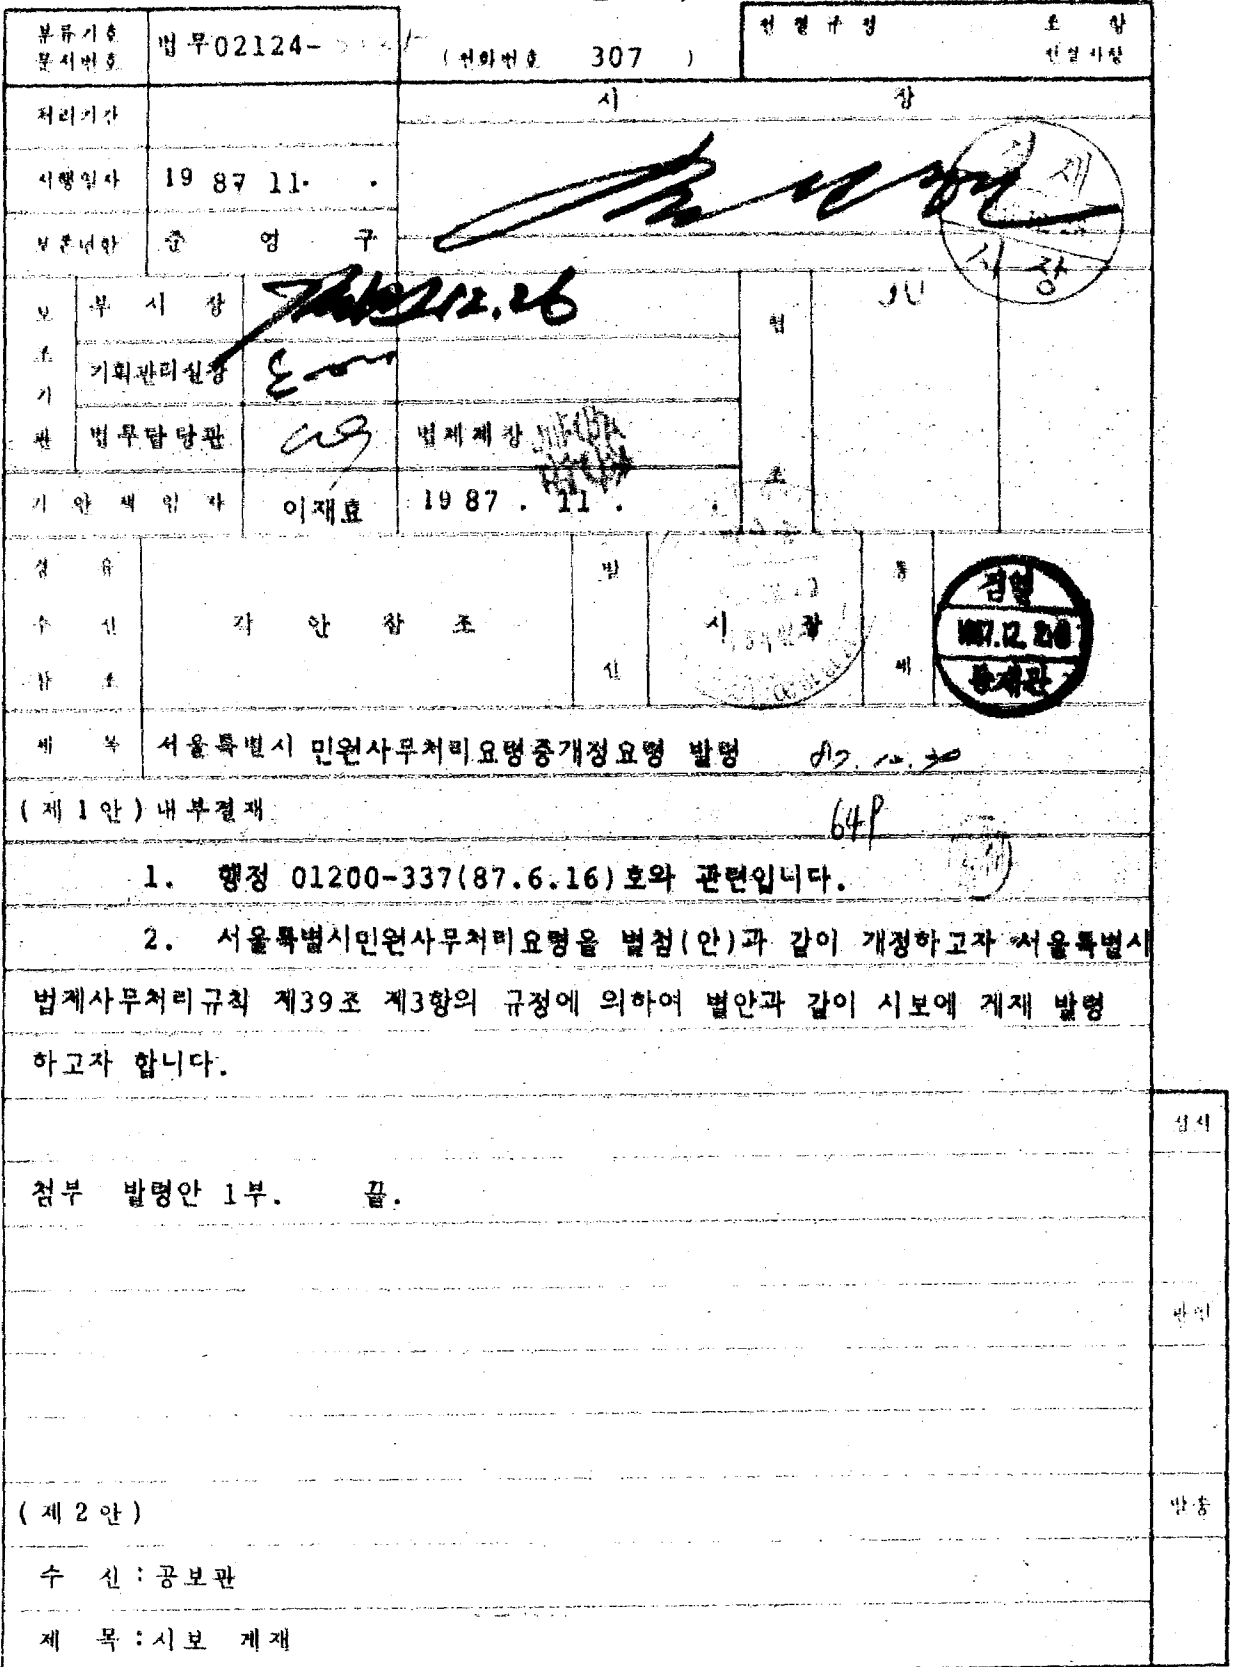 분류기호 문서번호 법무02124-
(전화번호 307 )
전결규정 조 항
전결사항
처리기간
시 장
시행일자 1987 11. .
보존년한 준 영 구
결재
시장
보조기관
부 시 장 12.26
협조
기획관리실장
법무담당관 법제계장
기 안 책 임 자 이재효 1987 . 11 . .
경 유
수 신 각 안 참 조
참 조
발 신 시 장
통 제
검열
1987.12.26
통제관
제 목 서울특별시 민원사무처리요령중개정요령 발령 87.12.30
(제 1 안) 내부결재 64P
1. 행정 01200-337(87.6.16)호와 관련입니다.
2. 서울특별시민원사무처리요령을 별첨(안)과 같이 개정하고자 서울특별시
법제사무처리규칙 제39조 제3항의 규정에 의하여 별안과 같이 시보에 게재 발령
하고자 합니다.
첨부 발령안 1부. 끝.
(제 2 안)
수 신 : 공보관
제 목 : 시보 게재
정서
관인
발송